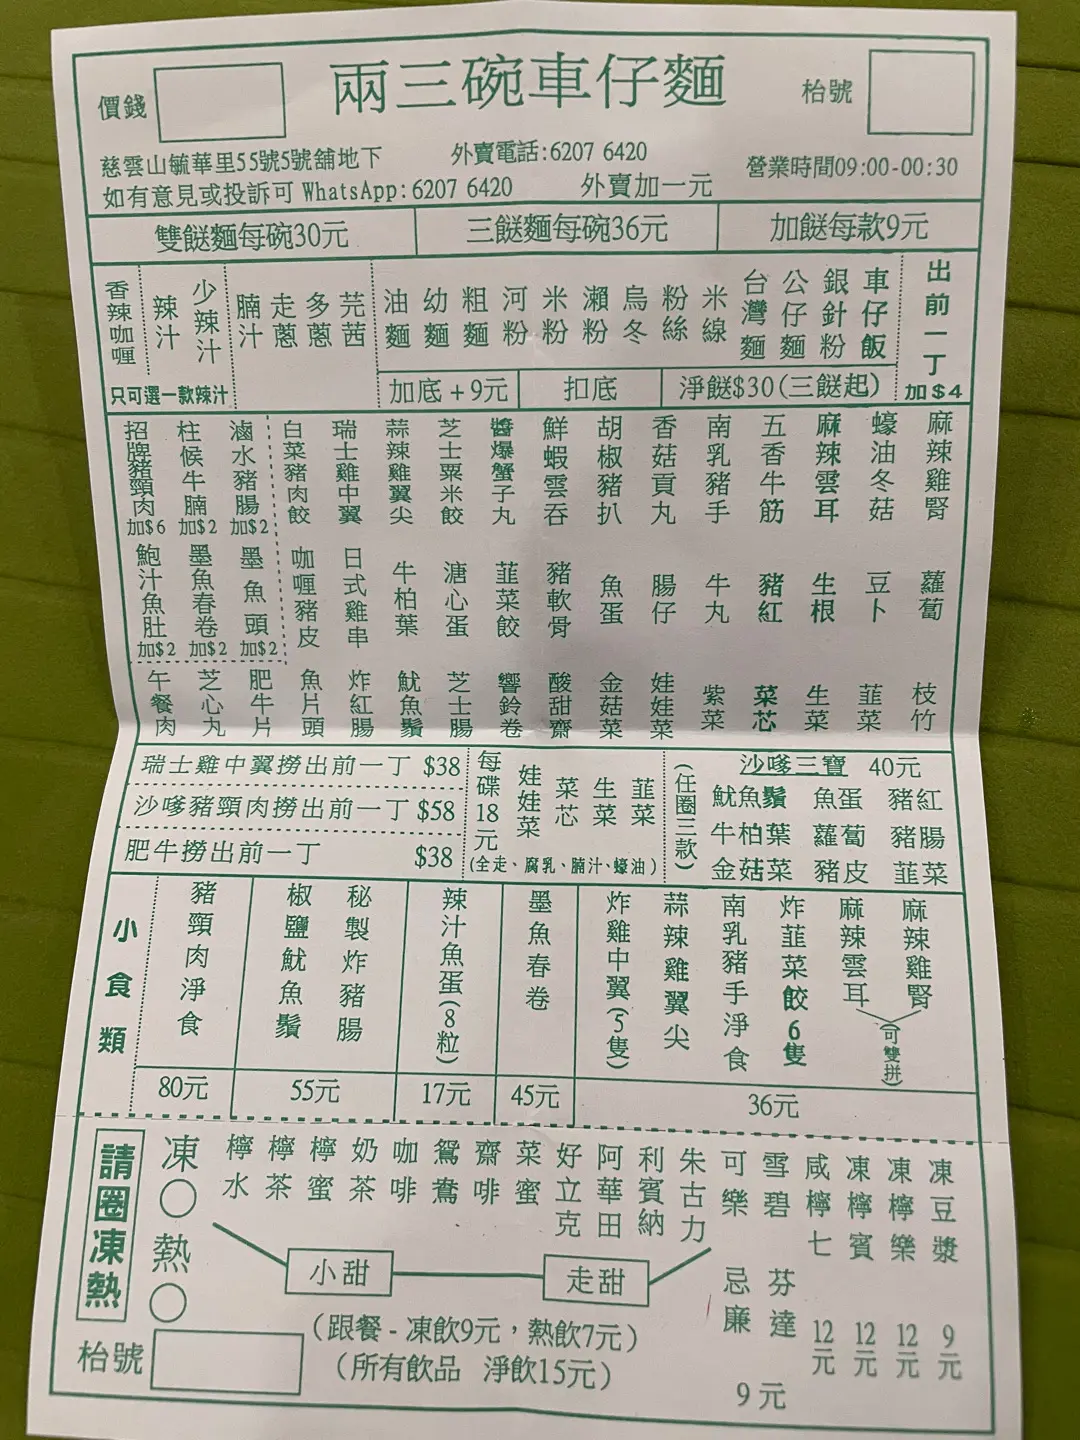 價錢
兩三碗車仔麵
枱號
慈雲山毓華里55號5號舖地下
外賣電話:6207 6420
營業時間09:00-00:30
如有意見或投訴可 WhatsApp: 6207 6420
外賣加一元
雙餸麵每碗30元
三餸麵每碗36元
加餸每款9元
香辣咖喱
辣汁
少辣汁
只可選一款辣汁
腩汁
走蔥
多蔥
芫茜
油麵
幼麵
粗麵
河粉
米粉
瀨粉
烏冬
粉絲
米線
台灣麵
公仔麵
銀針粉
車仔飯
出前一丁
加$4
加底+9元
扣底
淨餸$30(三餸起)
招牌豬頸肉
加$6
柱候牛腩
加$2
滷水豬腸
加$2
白菜豬肉餃
瑞士雞中翼
蒜辣雞翼尖
芝士粟米餃
醬爆蟹子丸
鮮蝦雲吞
胡椒豬扒
香菇貢丸
南乳豬手
五香牛筋
麻辣雲耳
蠔油冬菇
麻辣雞腎
鮑汁魚肚
加$2
墨魚春卷
加$2
墨魚頭
加$2
咖喱豬皮
日式雞串
牛柏葉
溏心蛋
韮菜餃
豬軟骨
魚蛋
腸仔
牛丸
豬紅
生根
豆卜
蘿蔔
午餐肉
芝心丸
肥牛片
魚片頭
炸紅腸
魷魚鬚
芝士腸
響鈴卷
酸甜齋
金菇菜
娃娃菜
紫菜
菜芯
生菜
韮菜
枝竹
瑞士雞中翼撈出前一丁 $38
沙嗲豬頸肉撈出前一丁 $58
肥牛撈出前一丁 $38
每碟18元
娃娃菜
菜芯
生菜
韮菜
(全走、腐乳、腩汁、蠔油)
(任圈三款)
沙嗲三寶 40元
魷魚鬚 魚蛋 豬紅
牛柏葉 蘿蔔 豬腸
金菇菜 豬皮 韮菜
小食類
豬頸肉淨食
80元
椒鹽魷魚鬚
秘製炸豬腸
55元
辣汁魚蛋(8粒)
17元
墨魚春卷
45元
炸雞中翼(5隻)
蒜辣雞翼尖
南乳豬手淨食
炸韮菜餃6隻
麻辣雲耳
麻辣雞腎
(可雙拼)
36元
請圈凍熱
凍
熱
檸水
檸茶
檸蜜
奶茶
咖啡
鴛鴦
齋啡
菜蜜
好立克
阿華田
利賓納
朱古力
可樂
雪碧
忌廉
芬達
9元
咸檸七
12元
凍檸賓
12元
凍檸樂
12元
凍豆漿
9元
小甜
走甜
(跟餐 - 凍飲9元，熱飲7元)
(所有飲品 淨飲15元)
枱號